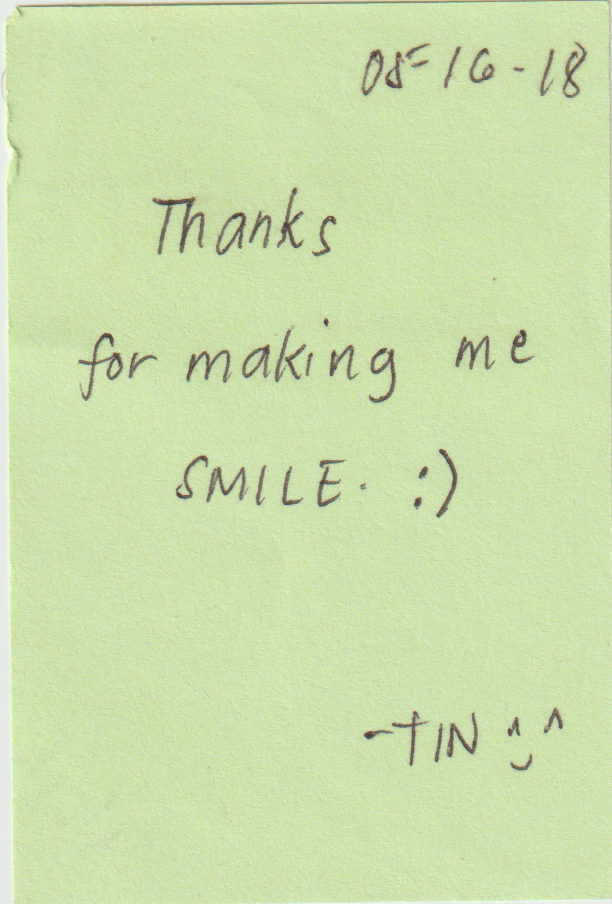 05-16-18
Thanks
for making me
SMILE. :)
-TIN ^_^